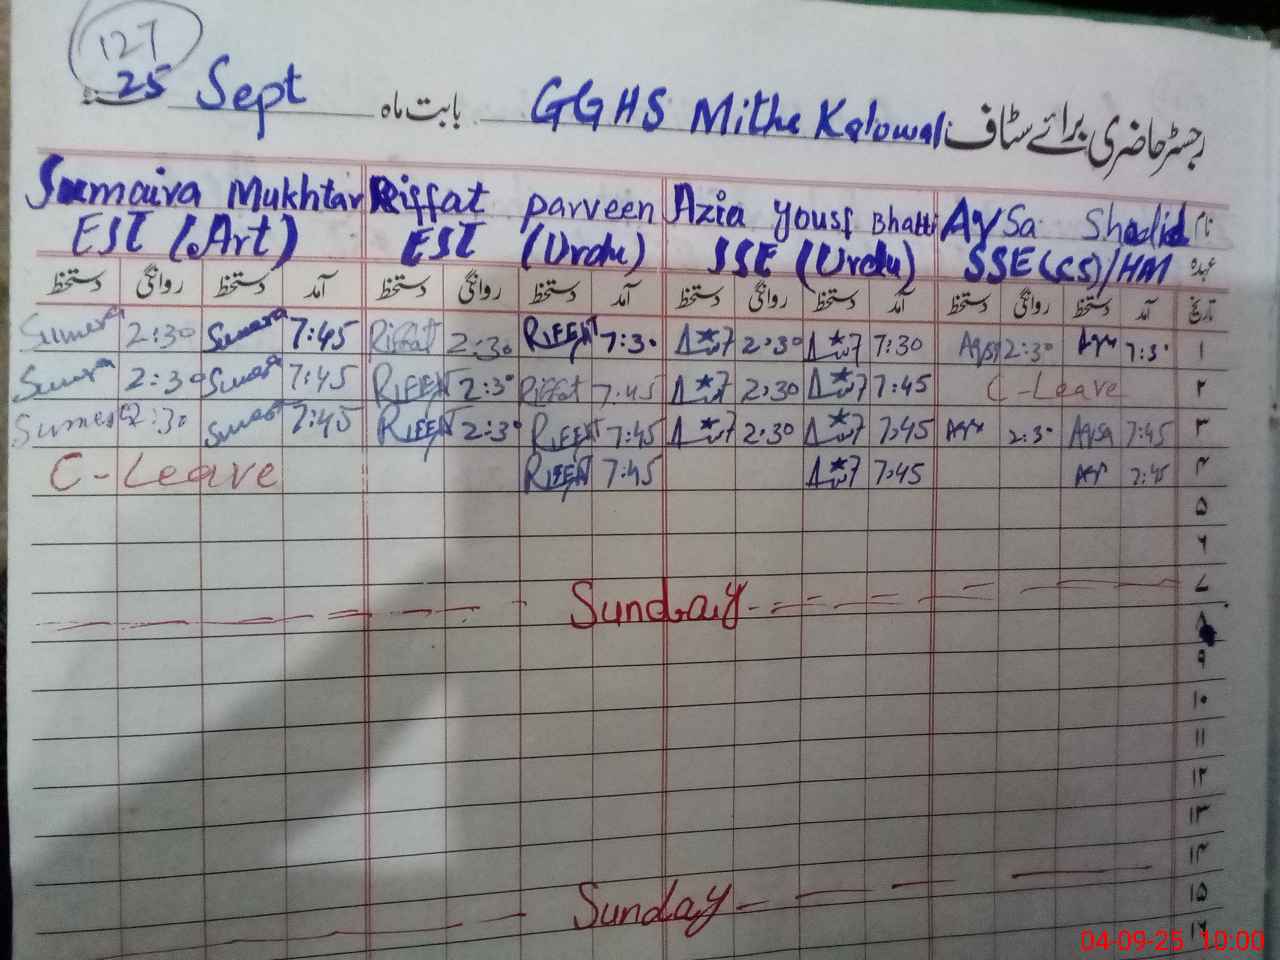 127
رجسٹر حاضری برائے سٹاف GGHS Mithe Kalowal بابت ماہ Sept 25
نام Aqsa Shahid Azia yousf Bhatti Riffat parveen Sumaira Mukhtar
عہدہ SSE(CS)/HM SSE (Urdu) EST (Urdu) EST (Art)
تاریخ آمد دستخط روانگی دستخط آمد دستخط روانگی دستخط آمد دستخط روانگی دستخط آمد دستخط روانگی دستخط
۱ 7:30 Aqsa 2:30 Aqsa 7:30 2:30 7:30 RIFFAT 2:30 Riffat 7:45 Sumera 2:30 Sumera
۲ C-Leave 7:45 2:30 7:45 Riffat 2:30 RIFFAT 7:45 Sumera 2:30 Sumera
۳ 7:45 Aqsa 2:30 Aqsa 7:45 2:30 7:45 RIFFAT 2:30 RIFFAT 7:45 Sumera 2:30 Sumera
۴ 7:45 Aqsa 7:45 7:45 RIFFAT C-Leave
۵
۶
۷ Sunday
۸
۹
۱۰
۱۱
۱۲
۱۳
۱۴ Sunday
۱۵
۱۶
04-09-25 10:00